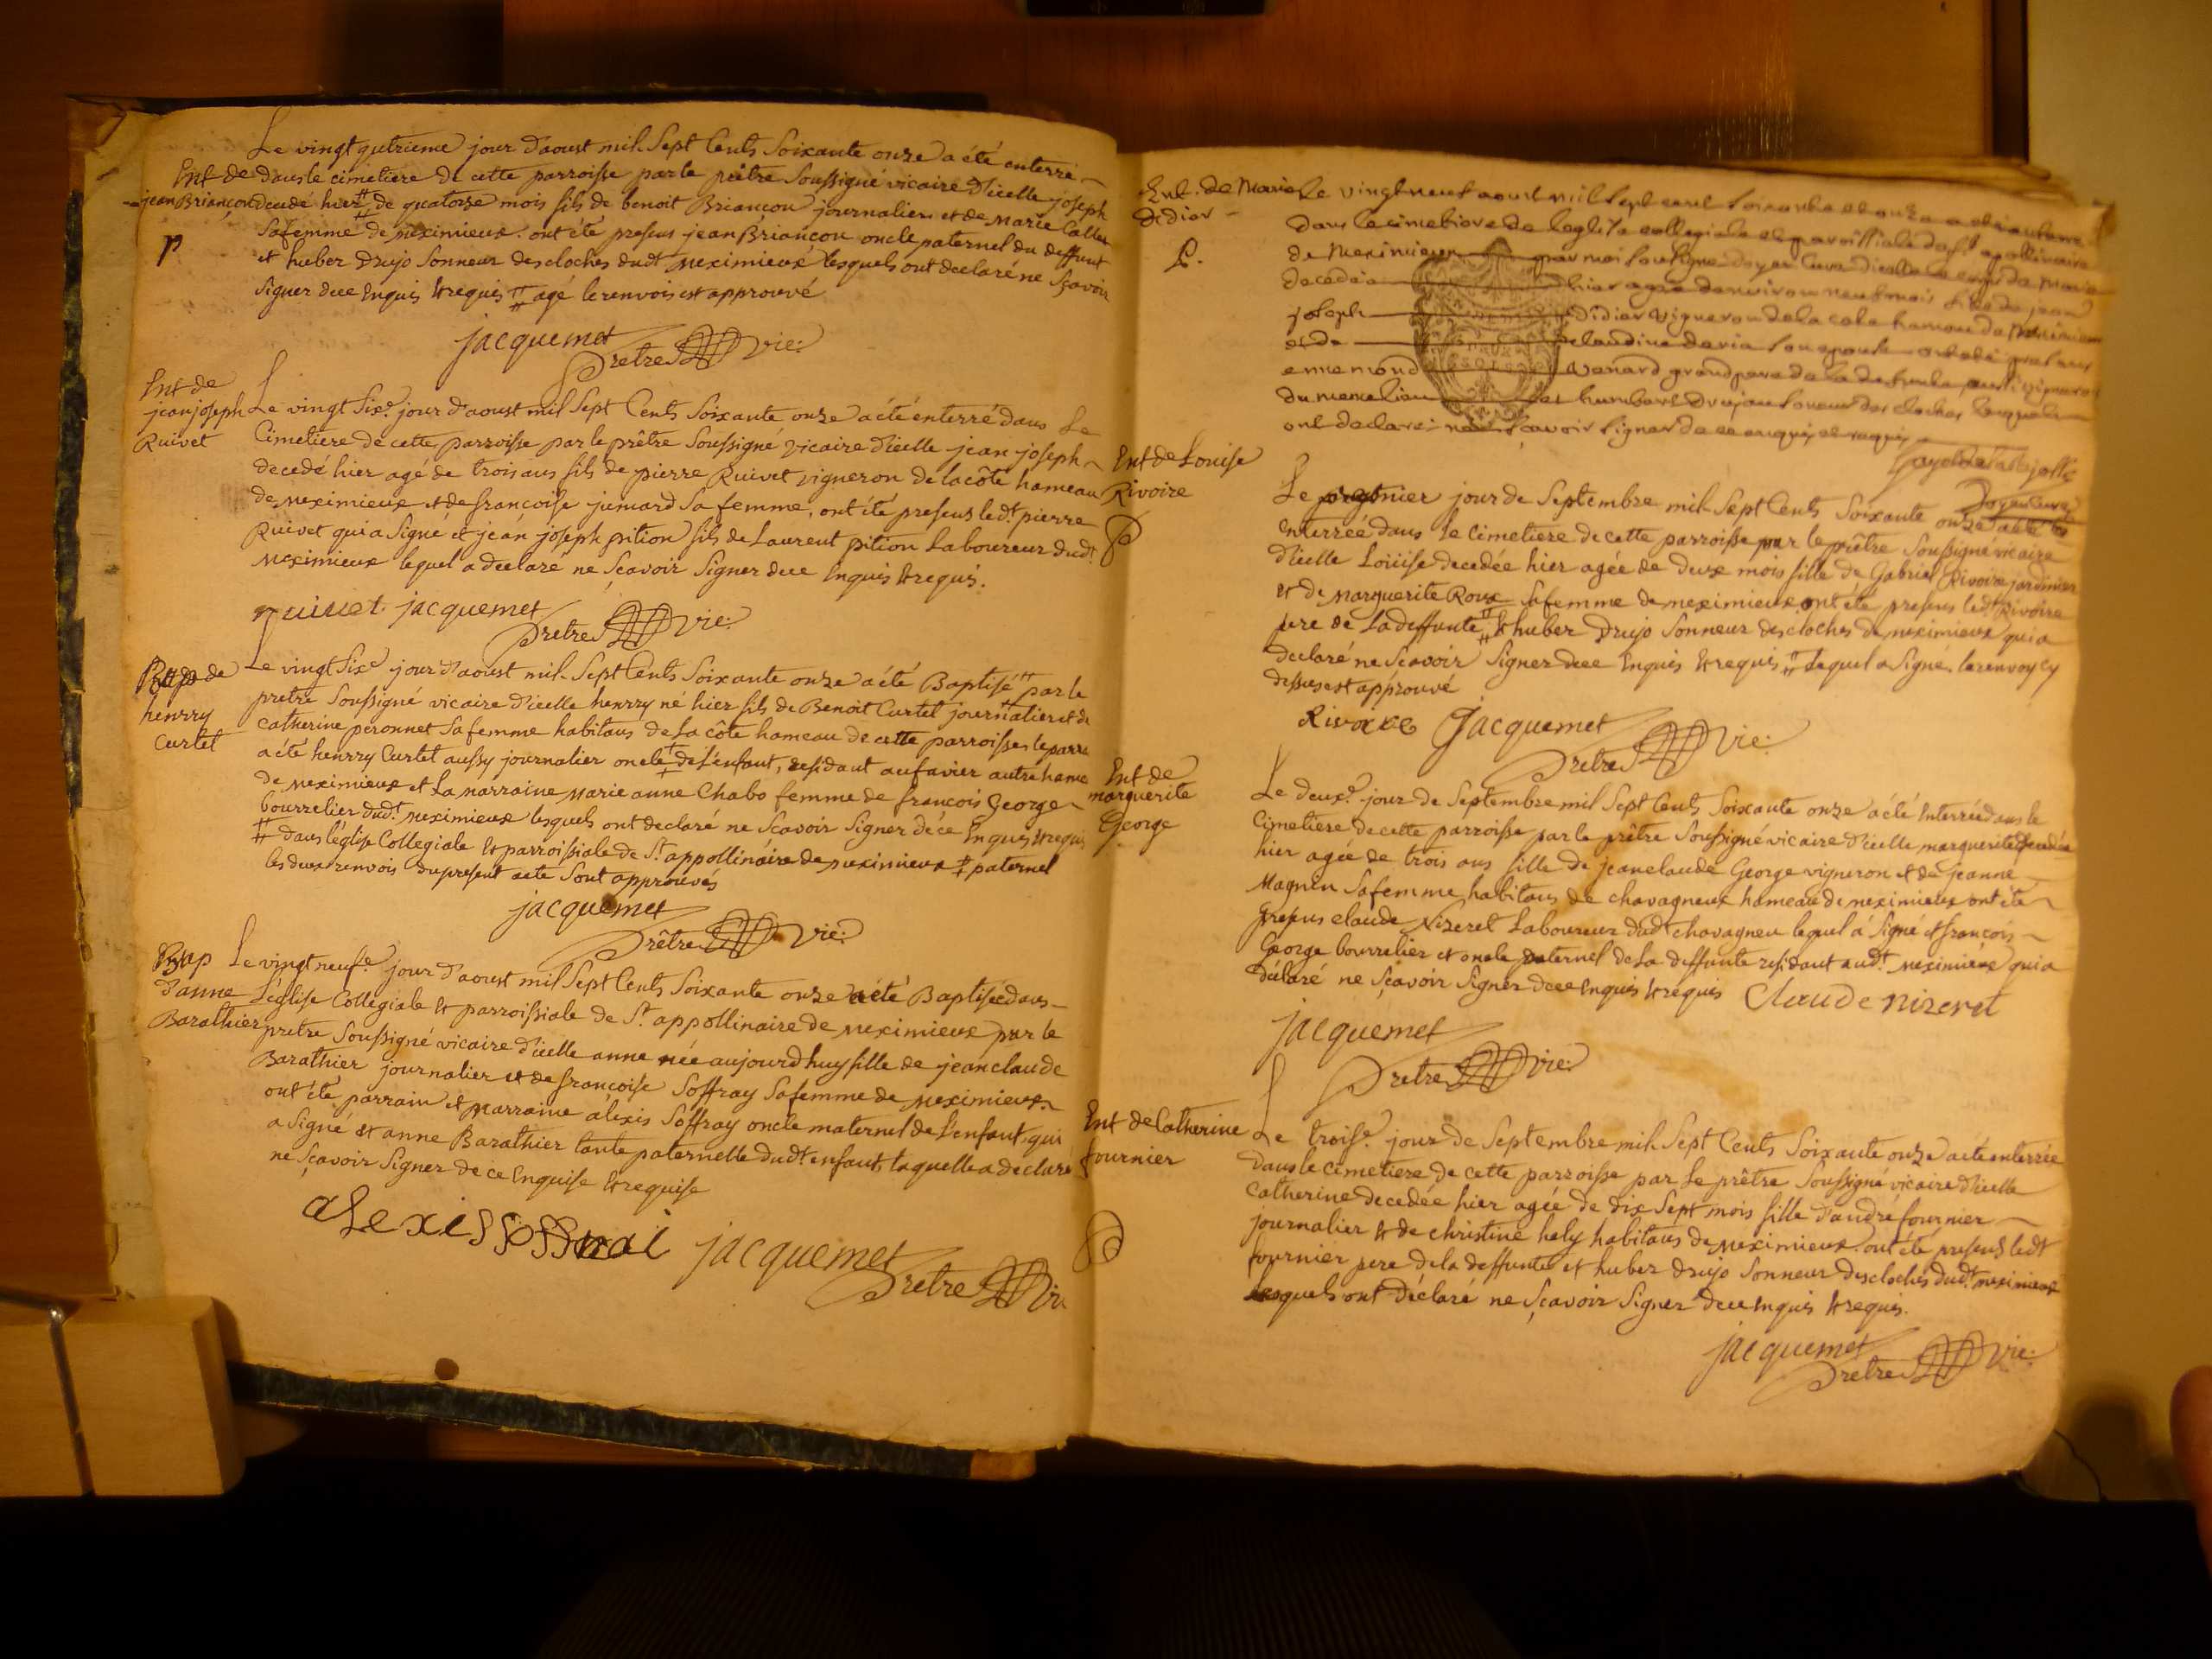 Le vingt qutrieme jour d'aoust mil Sept Cents Soixante onze a été enterré
Ent de
dans le cimetiere de cette parroisse par le prêtre Soussigné vicaire d'icelle joseph
jean Briançon
decedé hier # de quatorze mois fils de benoit Briançon journalier et de Marie Callet
P
Sa femme de meximieux. ont été presens jean Briançon oncle paternel du deffunt
et huber Drujo Sonneur des cloches dudt meximieux lesquels ont declaré ne Sçavoir
Signer de ce Enquis & requis # agé le renvois est approuvé
jacquemet
Prêtre vic:
Ent de
jean joseph
Ruivet
Le vingt Sixe. jour d'aoust mil Sept Cents Soixante onze a été énterré dans Le
Cimetiere de cette parroisse par le prêtre Soussigné vicaire d'icelle jean joseph
decedé hier agé de trois ans fils de pierre Ruivet vigneron de la côte hameau
de meximieux et de françoise jumard Sa femme, ont été presens ledt. pierre
Ruivet qui a Signé et jean joseph pition fils de Laurent pition Laboureur dudt.
meximieux lequel a declaré ne Sçavoir Signer de ce Enquis & requis.
ruivet jacquemet
Prêtre vic:
Bap de
henrry
Curtet
Le vingt Sixe jour d'aoust mil Sept Cents Soixante onze a été Baptisé # par le
prêtre Soussigné vicaire d'icelle henrry né hier fils de Benoit Curtet journalier et de
catherine peronnet Sa femme habitans de La côte hameau de cette parroisse, le parra
a été henrry Curtet aussy journalier oncle ‡ de L'enfant, residant au favier autre hame
de meximieux et La marraine marie anne Chabo femme de françois George
bourrelier dudt. meximieux lesquels ont declaré ne Scavoir Signer de ce Enquis & requis
# dans l'église Collegiale & parroissiale de St. appollinaire de meximieux ‡ paternel
les deux renvois du present acte Sont approuvés
jacquemet
Prêtre vic:
Bap
d'anne
Barathier
Le vingt neufe. jour d'aoust mil Sept Cents Soixante onze a été Baptisée dans
L'église Collegiale & parroissiale de St. appollinaire de meximieux par le
pretre Soussigné vicaire d'icelle anne née aujourd'huy fille de jean claude
Barathier journalier et de françoise Soffray Sa femme de meximieux
ont été parrain et marraine alexis Soffray oncle maternel de L'enfant, qui
a Signé et anne Barathier tante paternelle dudt. enfant, laquelle a declaré
ne Sçavoir Signer de ce Enquise & requise
alexis Soffrai jacquemet
Prêtre vi
Ent. de Marie
Didier
P.
Le vingt neuf aoust mil sept cent soixante et onze a été enterrée
dans le cimetiere de leglise collegiale et paroissiale de st apollinaire
de Meximieux par moi soussigné doyen curé d'icelle le corps de Marie
decedée hier agée d'environ neuf mois fille de jean
joseph Didier vigneron de la cote hameau de Meximieux
et de claudine son epouse ont été presens
ennemond Venard grand pere de la defunte aussi vigneron
et humbert Drujou sonneur des cloches lesquels
ont declaré ne sçavoir signer de ce enquis et requis
Doyen curé
Ent de Louise
Rivoire
P
Le premier jour de Septembre mil Sept Cents Soixante onze a été
Enterrée dans Le Cimetiere de cette parroisse par le prêtre Soussigné vicaire
d'icelle Loüise decedée hier agée de deux mois fille de Gabriel Rivoire jardinier
et de Marguerite Roux Sa femme de meximieux, ont été presens ledt Rivoire
pere de La deffunte # & huber Drujo Sonneur des cloches de meximieux qui a
declaré ne Scavoir Signer de ce Enquis & requis # Lequel a Signé, le renvoy cy
dessus est approuvé
Rivoire Jacquemet
Prêtre vic:
Ent de
marguerite
George
Le deuxe. jour de Septembre mil Sept Cents Soixante onze a été Enterrée dans le
cimetiere de cette parroisse par le prêtre Soussigné vicaire d'icelle marguerite decedée
hier agée de trois ans fille de jean claude George vigneron et de jeanne
Magnin Sa femme habitans de chavagneux hameau de meximieux ont été
presens claude Nizeret Laboureur dudt. chavagneu lequel a Signé et françois
George bourrelier et oncle paternel de La deffunte residant audt. meximieux qui a
declaré ne Sçavoir Signer de ce Enquis & requis Claude nizeret
jacquemet
Prêtre vic:
Ent de Catherine
fournier
P
Le troise. jour de Septembre mil Sept Cents Soixante onze a été enterrée
dans le cimetiere de cette parroisse par Le prêtre Soussigné vicaire d'icelle
Catherine decedée hier agée de dix Sept mois fille d'andré fournier
journalier & de christine hely habitans de meximieux. ont été presens ledt
fournier pere de la deffunte et huber Drujo Sonneur des cloches dudt. meximieux
Lesquels ont déclaré ne Sçavoir Signer de ce Enquis & requis.
jacquemet
Prêtre vic: